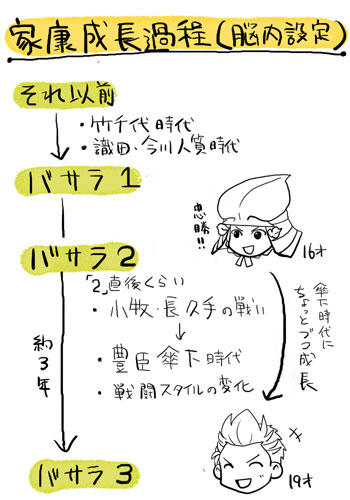 家康成長過程(脳内設定)
それ以前
・竹千代時代
・識田・今川人質時代
バサラ1
忠勝!!
16才
バサラ2
「2」直後くらい
・小牧・長久手の戦い
・豊臣傘下時代
・戦闘スタイルの変化
約3年
傘下時代に
ちょっとブコ成長
バサラ3
19才